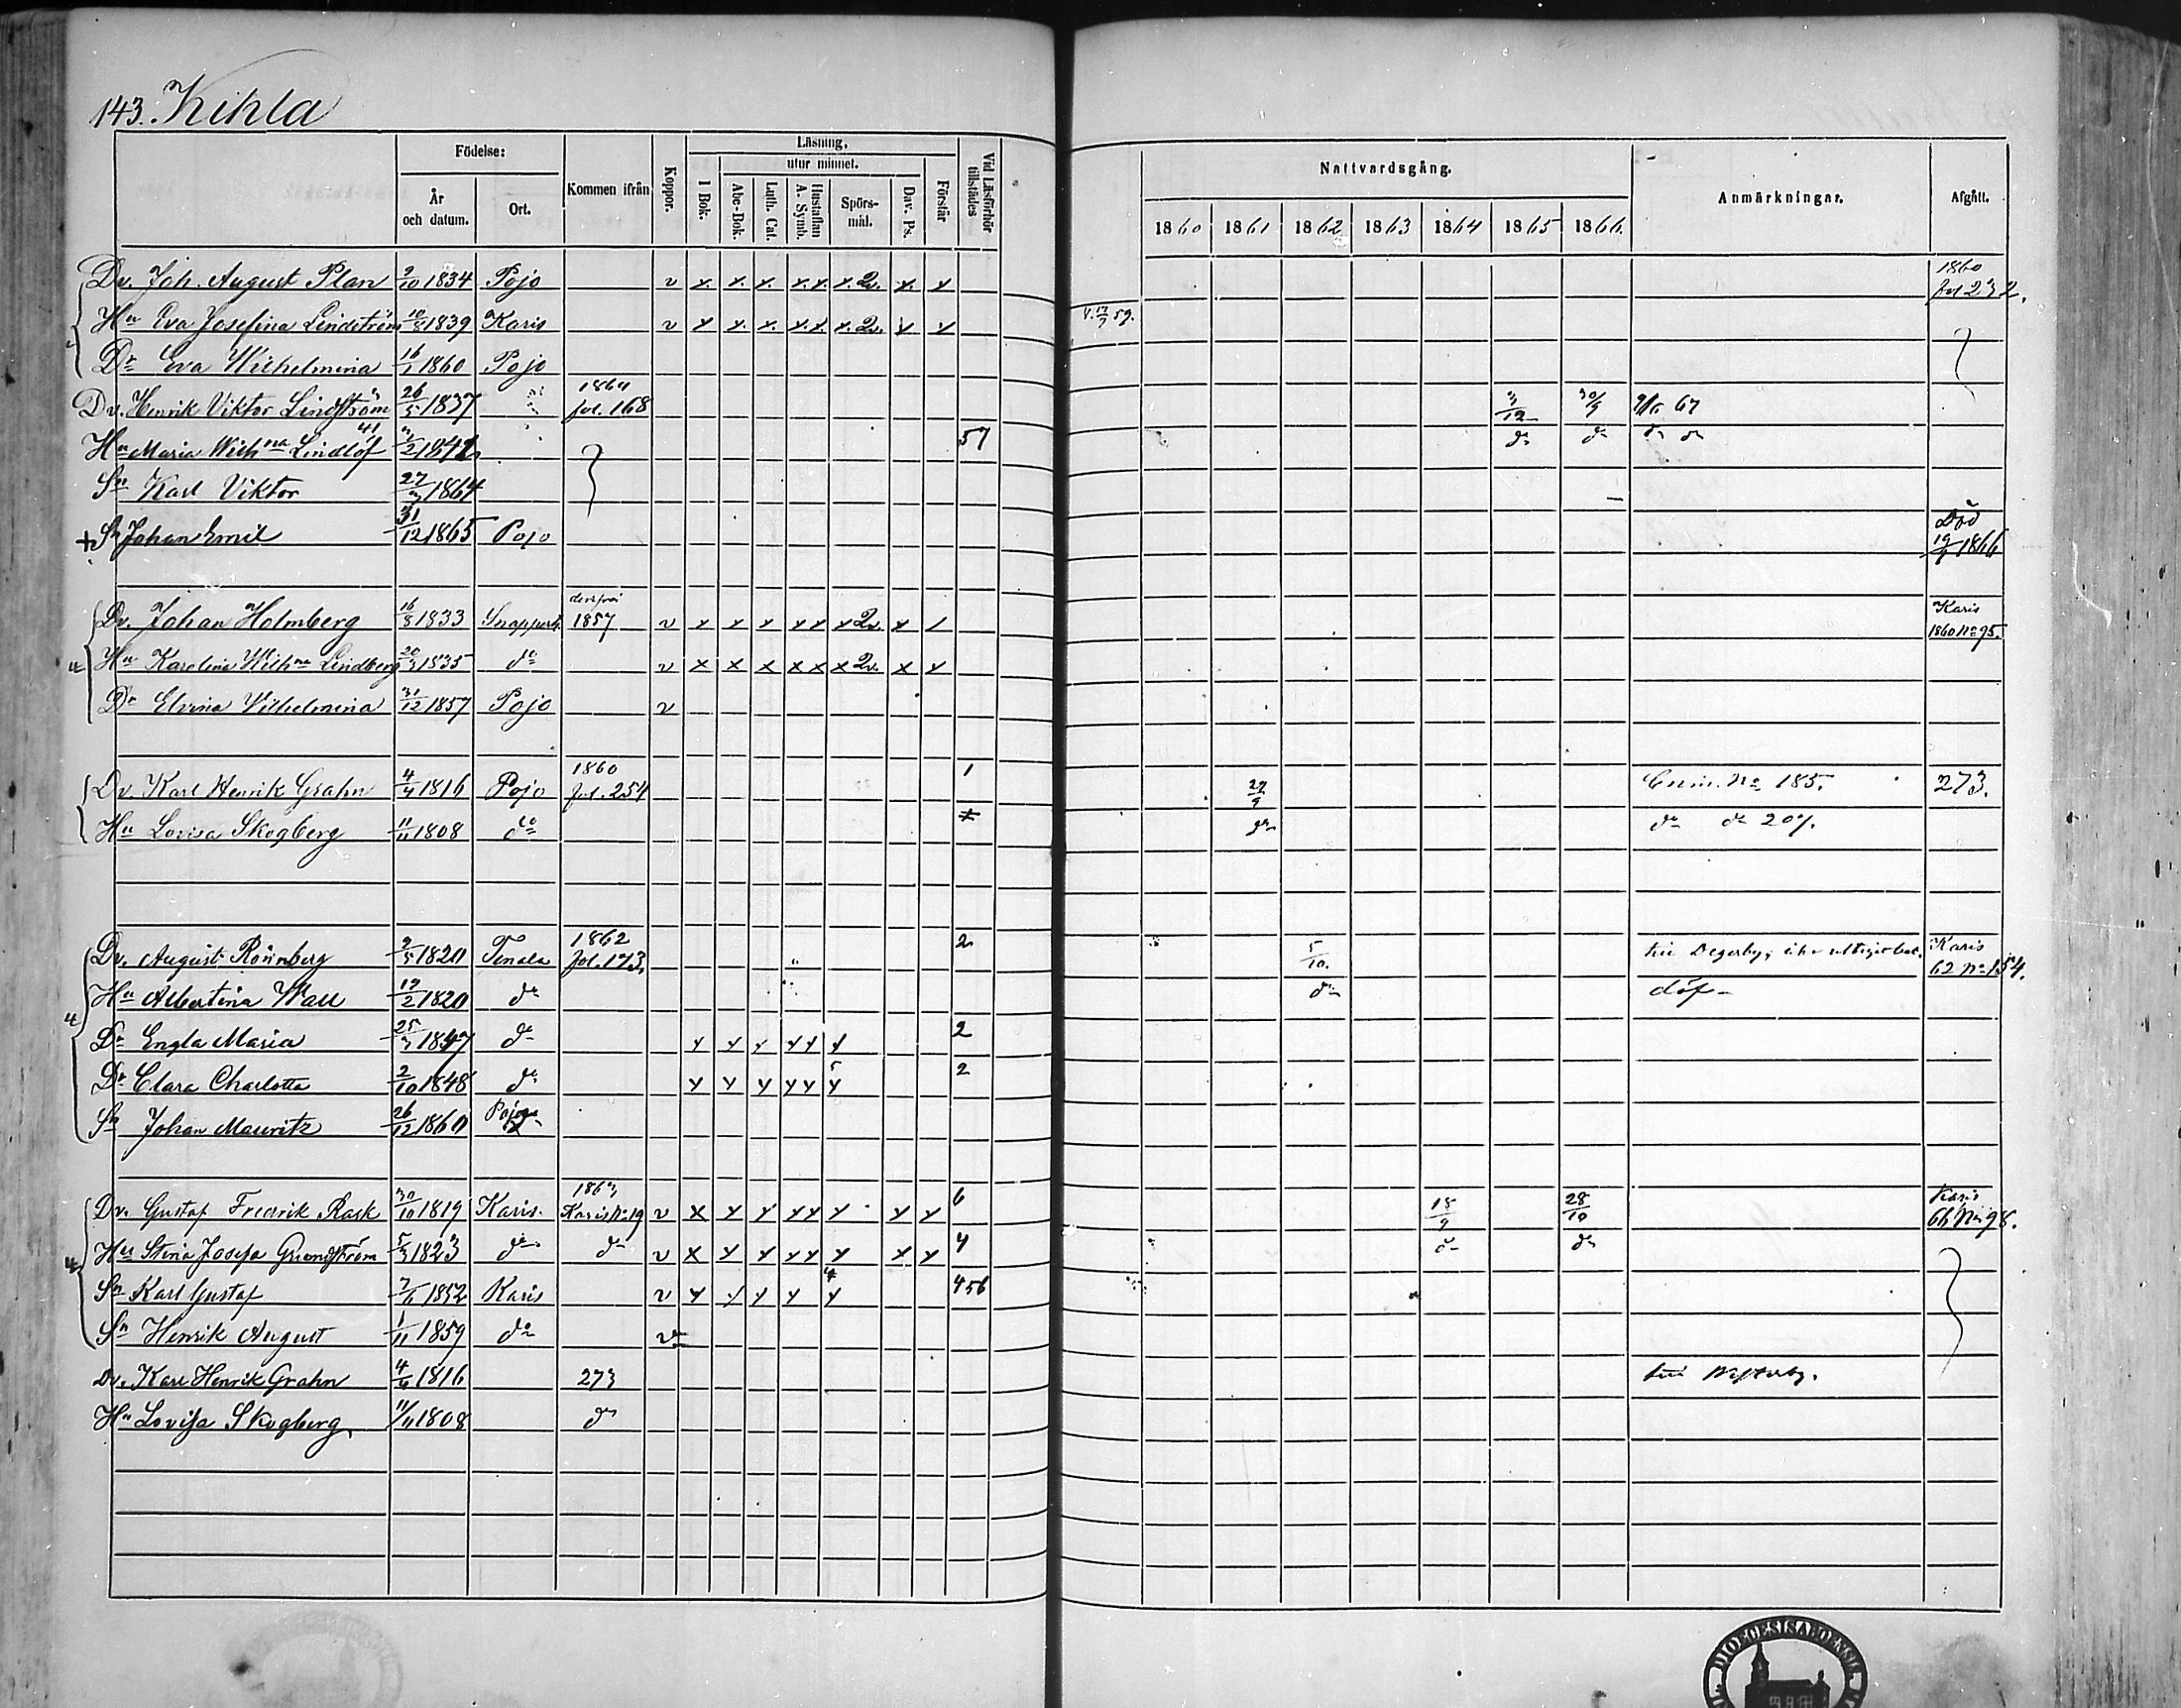 143. Kihla
Födelse: Läsning. Nattvardsgång.
År och datum. Ort. Kommen ifrån Koppor. I Bok. utur minnet. Abc-Bok. Luth. Cat. Hustaflan A. Symb. Spörs-mål. Dav. Ps. Förstår Vid Läsförhör tillstädes 1860 1861 1862 1863 1864 1865 1866. Anmärkningar. Afgått.
Dv. Joh. August Plan 9/10 1834 Pojo v x x x x x x 2v. x x 1860 fol 232.
Hu Eva Josefina Lindström 10/8 1839 Karis v x x x x x x 2v. x x 59.
Dr Eva Wilhelmina 16/1 1860 Pojo
Dv. Henrik Viktor Lindström 26/5 1837 fol. 168 3/12 30/9 67
Hu Maria Wilhna Lindlöf 41 57 do do do do
Sn Karl Viktor 1864
+ Sn Johan Emil 31/12 1865 Pojo Död 1866
Dv. Johan Holmberg 16/8 1833 Snappert. 1857 v x x x x x x 2v. x / Karis 1860 No 95.
Hu Karolina Wilhna Lindberg 1835 do v x x x x x x 2v. x x
Dr Elvina Wilhelmina 31/12 1857 Pojo v
Dv Karl Henrik Grahn 1816 Pojo 1860 fol. 254 1 29/9 No 185. 273.
Hu Lovisa Skogberg 11/11 1808 do do do do 207.
Dv. August Rönnberg 1820 Tenala 1862 fol. 173. 2 5/10. till Degerby, Karis 62 No 154.
Hu Albertina Wall 19/2 1820 do do döf
Dr Engla Maria 1847 do x x x x x x 2
Dr Clara Charlotta 2/10 1848 do x x x x x x 5 2
Sn Johan Mauritz 26/12 1860 Pojo
Dv. Gustaf Fredrik Rask 30/10 1819 Karis. 1863 Karis No 19 v x x x x x x x x 6 18/9 28/10 Karis 66 No 98.
Hu Stina Josefa Grundström 5/3 1823 do do v x x x x x x x x 4 do do
Sn Karl Gustaf 7/6 1852 Karis v x x x x x 4 456
Sn Henrik August 1/11 1859 do v
Dv. Karl Henrik Grahn 1816 273 till Westerby.
Hu Lovisa Skogberg 11/11 1808 do
DIOECESIS ABOENSIS